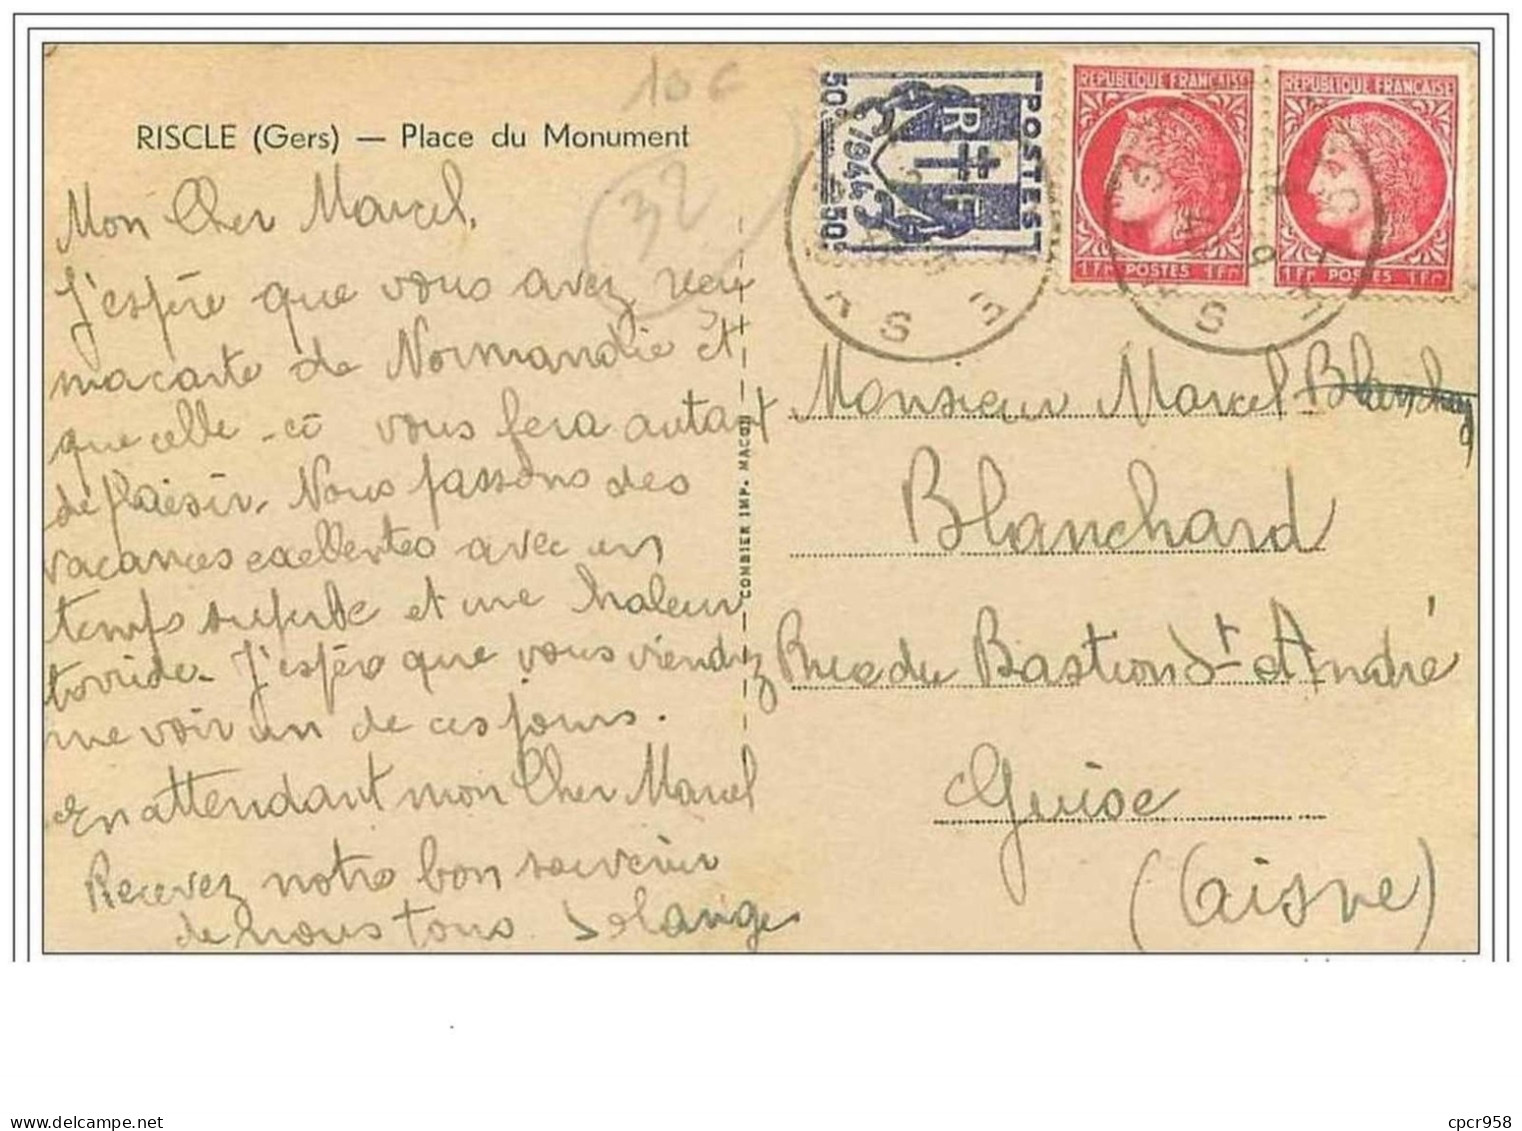 10 €
RISCLE (Gers) — Place du Monument
32
Mon Cher Marcel,
J'espère que vous avez reçu
ma carte de Normandie et
que celle-ci vous fera autant
de plaisir. Nous passons des
vacances excellentes avec un
temps superbe et une chaleur
torride. J'espère que vous viendrez
me voir un de ces jours.
En attendant mon Cher Marcel
Recevez notre bon souvenir
de nous tous. Solange
COMBIER IMP. MACON
POSTES
RF
1944
50c 50c
REPUBLIQUE FRANÇAISE
1Fr POSTES 1Fr
REPUBLIQUE FRANÇAISE
1Fr POSTES 1Fr
Monsieur Marcel
Blanchard
Rue du Bastion St André
Guise
(Aisne)
cpcr958